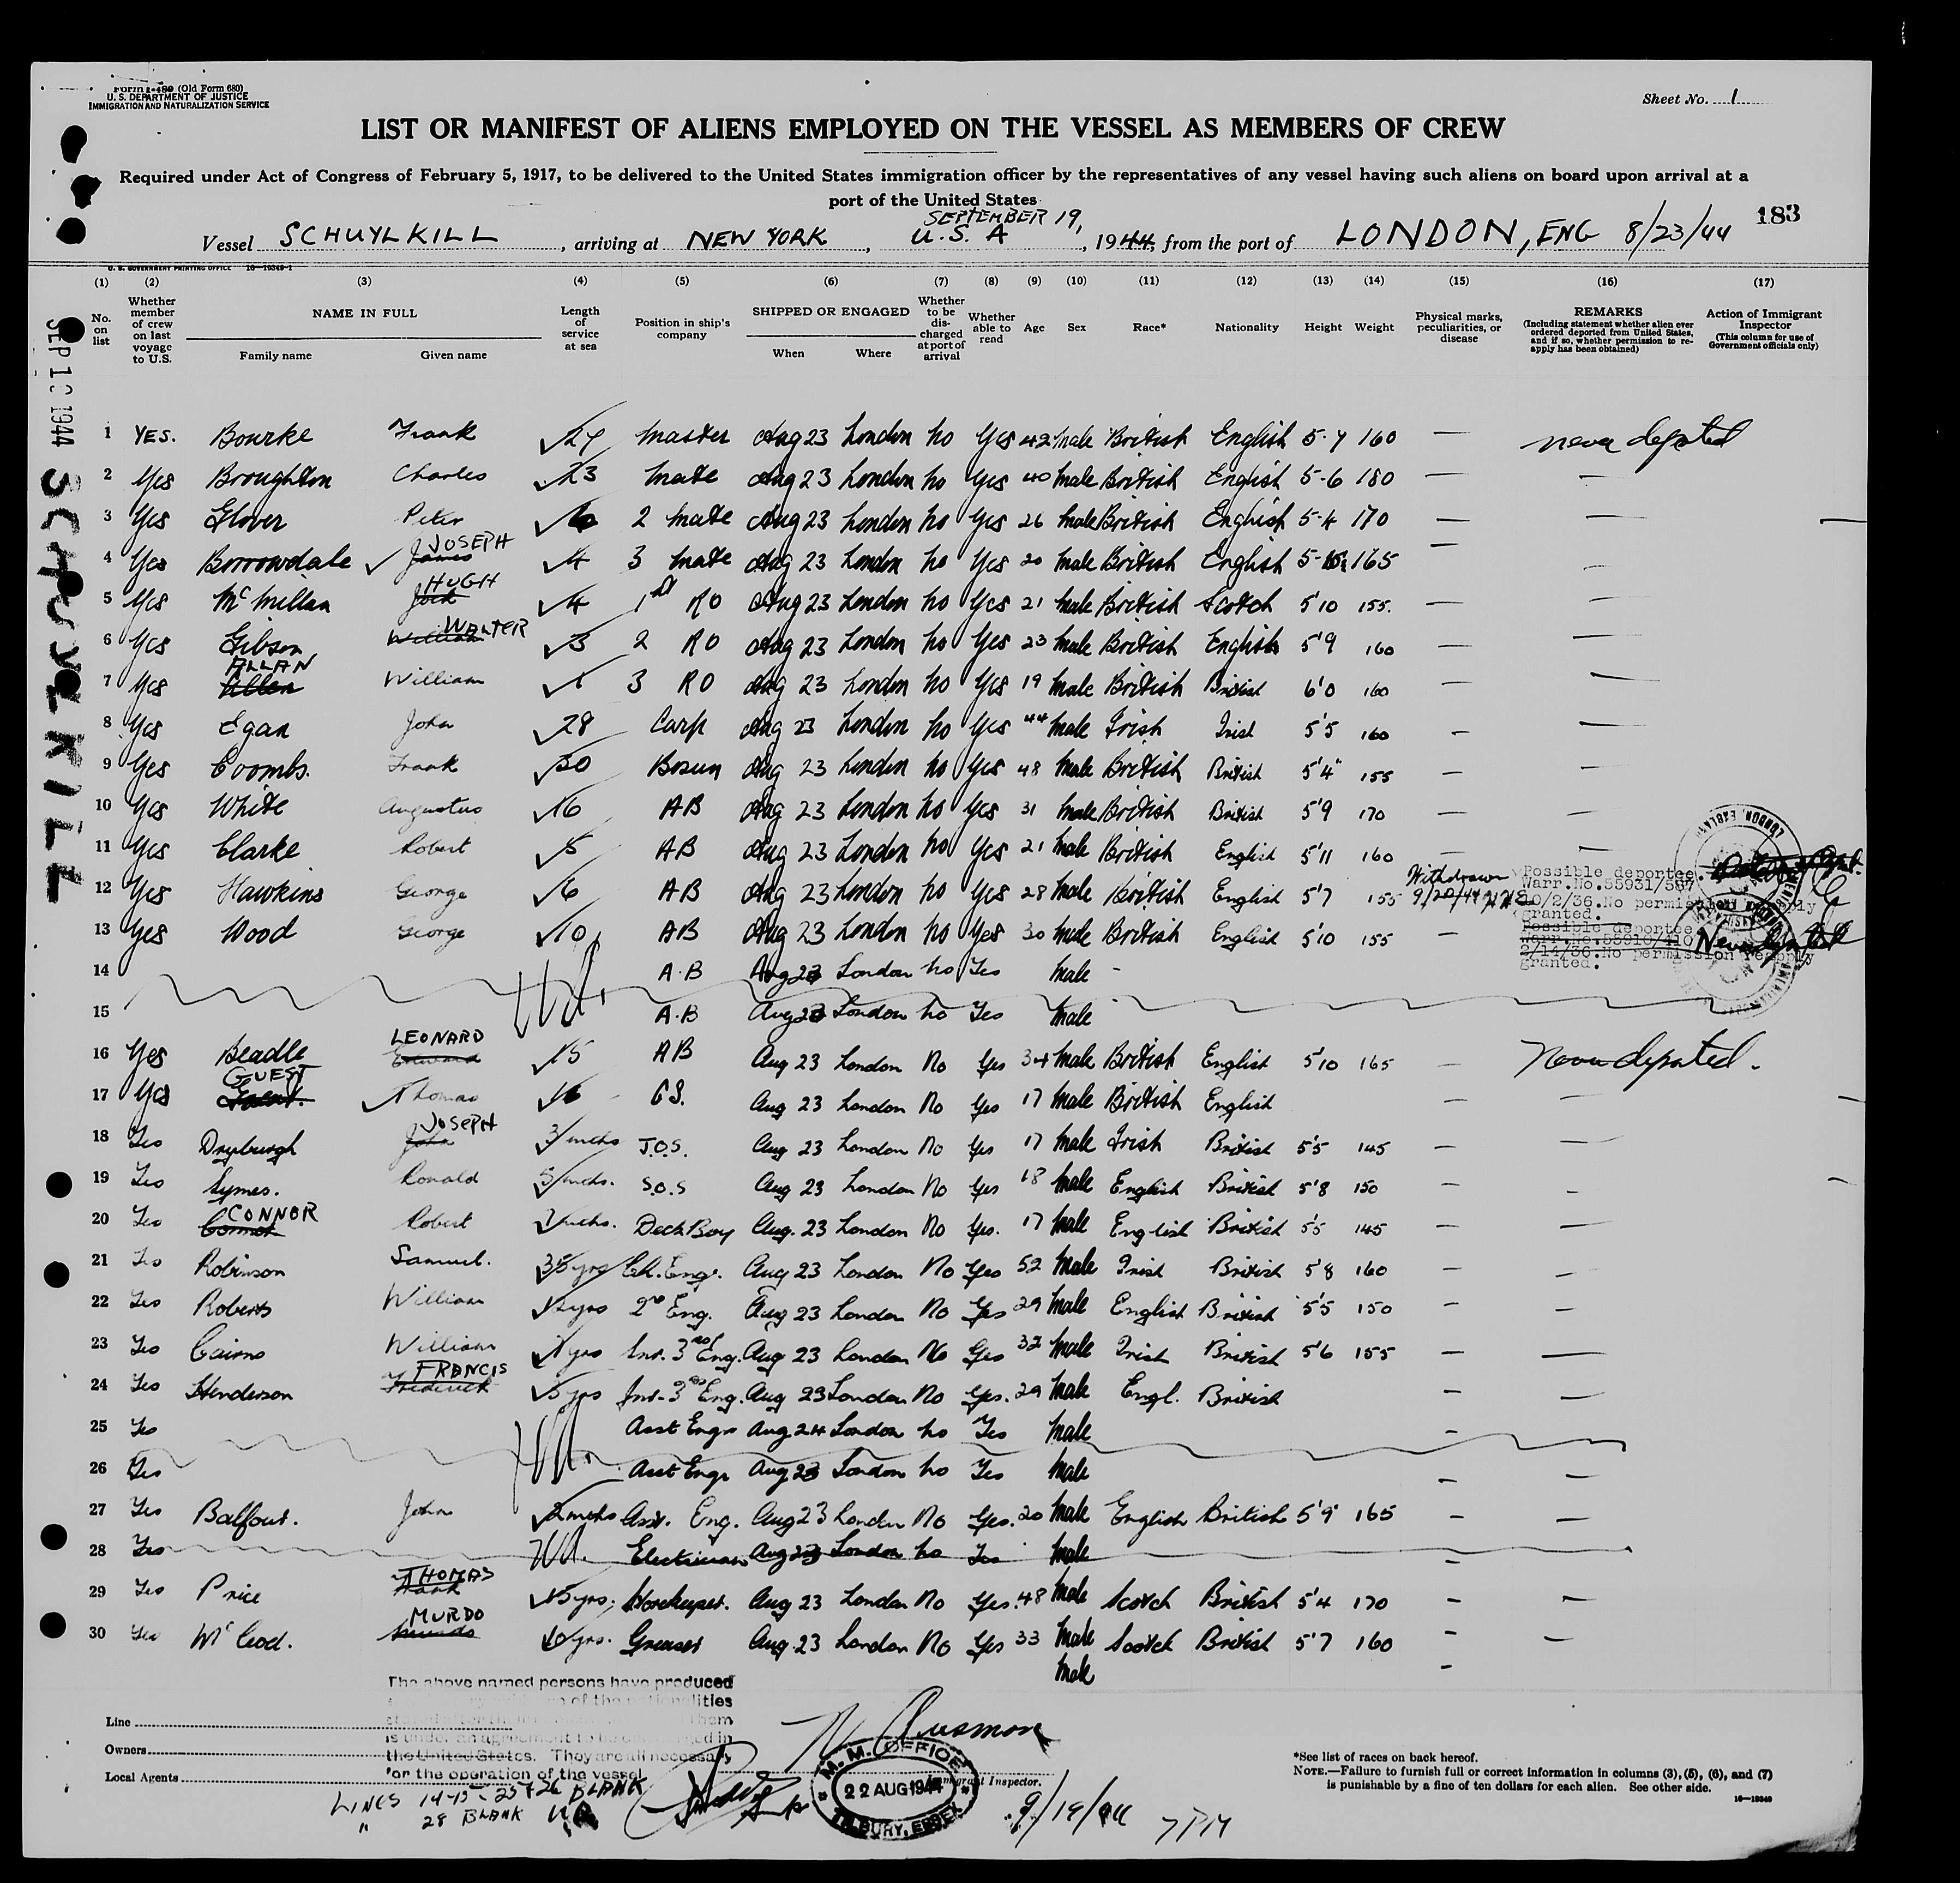 Form I-480 (Old Form 680)
U. S. DEPARTMENT OF JUSTICE
IMMIGRATION AND NATURALIZATION SERVICE
Sheet No. 1
LIST OR MANIFEST OF ALIENS EMPLOYED ON THE VESSEL AS MEMBERS OF CREW
Required under Act of Congress of February 5, 1917, to be delivered to the United States immigration officer by the representatives of any vessel having such aliens on board upon arrival at a
port of the United States
183
Vessel SCHUYLKILL, arriving at NEW YORK, U.S.A SEPTEMBER 19, 1944, from the port of LONDON, ENG 8/23/44
U. S. GOVERNMENT PRINTING OFFICE 16—19349-1
(1) (2) (3) (4) (5) (6) (7) (8) (9) (10) (11) (12) (13) (14) (15) (16) (17)
No. on list
Whether member of crew on last voyage to U.S.
NAME IN FULL
Family name Given name
Length of service at sea
Position in ship's company
SHIPPED OR ENGAGED
When Where
Whether to be discharged at port of arrival
Whether able to read
Age Sex Race* Nationality Height Weight
Physical marks, peculiarities, or disease
REMARKS
(Including statement whether alien ever ordered deported from United States, and if so, whether permission to reapply has been obtained)
Action of Immigrant Inspector
(This column for use of Government officials only)
SEP 19 1944
SCHUYLKILL
1 YES. Bourke Frank 27 Master Aug 23 London No Yes 42 Male British English 5-7 160 — never deported
2 Yes Broughton Charles 23 Mate Aug 23 London No Yes 40 Male British English 5-6 180 — —
3 Yes Glover Peter 6 2 Mate Aug 23 London No Yes 26 Male British English 5-4 170 — —
4 Yes Borrowdale James JOSEPH 4 3 Mate Aug 23 London No Yes 20 Male British English 165 — —
5 Yes McMillan Jock HUGH 4 1st RO Aug 23 London No Yes 21 Male British Scotch 5'10 155. — —
6 Yes Gibson William WALTER 3 2 RO Aug 23 London No Yes 23 Male British English 5'9 160 — —
7 Yes Allen ALLAN William 1 3 RO Aug 23 London No Yes 19 Male British British 6'0 160 — —
8 Yes Egan John 28 Carp Aug 23 London No Yes 44 Male Irish Irish 5'5 160 — —
9 Yes Coombs. Frank 30 Bosun Aug 23 London No Yes 48 Male British British 5'4" 155 — —
10 Yes White Augustus 16 AB Aug 23 London No Yes 31 Male British British 5'9 170 — —
11 Yes Clarke Robert 5 AB Aug 23 London No Yes 21 Male British English 5'11 160 — —
12 Yes Hawkins George 6 AB Aug 23 London No Yes 28 Male British English 5'7 155 Withdrawn 9/20/44 Possible deportee Warr.No.55931/587 10/2/36.No permission reapply granted.
13 Yes Wood George 10 AB Aug 23 London No Yes 30 Male British English 5'10 155 — Possible deportee Warr.No.55910/410 2/14/36.No permission reapply granted.
14 A.B Aug 23 London No Yes Male -
15 A.B Aug 23 London No Yes Male
16 Yes Beadle Edward LEONARD 15 AB Aug 23 London No Yes 34 Male British English 5'10 165 — Never deported.
17 Yes GUEST Thomas Aug 23 London No Yes 17 Male British English — —
18 Yes Dryburgh John JOSEPH 3/mths J.O.S. Aug 23 London No Yes 17 Male Irish British 5'5 145 — —
19 Yes Symes. Ronald 5/mths. S.O.S Aug 23 London No Yes 18 Male English British 5'8 150 — —
20 Yes CONNOR Robert mths. Deck Boy Aug. 23 London No Yes. 17 Male English British 5'5 145 — —
21 Yes Robinson Samuel. 35 yrs Ch. Eng. Aug 23 London No Yes 52 Male Irish British 5'8 160 — —
22 Yes Roberts William yrs 2nd Eng. Aug 23 London No Yes 29 Male English British 5'5 150 — —
23 Yes Cairns William yrs 3rd Eng. Aug 23 London No Yes 32 Male Irish British 5'6 155 — —
24 Yes Henderson Frederick FRANCIS 5 yrs 3rd Eng. Aug 23 London No Yes. 29 Male Engl. British — —
25 Yes Asst Engr Aug 24 London No Yes Male —
26 Yes Asst Engr Aug 23 London No Yes Male — —
27 Yes Balfour. John 2 mths Asst. Eng. Aug 23 London No Yes. 20 Male English British 5'9 165 — —
28 Yes Electrician Aug 23 London No Yes Male —
29 Yes Price Frank THOMAS 15 yrs. Storekeeper. Aug 23 London No Yes. 48 Male Scotch British 5'4 170 — —
30 Yes McLeod. MURDO 10 yrs. Greaser Aug. 23 London No Yes 33 Male Scotch British 5'7 160 — —
Male —
The above named persons have produced
of the nationalities
them
is under an agreement to be in
the United States. They are all necessary
for the operation of the vessel
Line
Owners
Local Agents
LINES 14-15-25+26 BLANK
" 28 BLANK
M.M. OFFICE
22 AUG 1944
TILBURY, ESSEX
Immigrant Inspector.
9/19/44 7PM
*See list of races on back hereof.
NOTE.—Failure to furnish full or correct information in columns (3), (5), (6), and (7)
is punishable by a fine of ten dollars for each alien. See other side.
16—19349